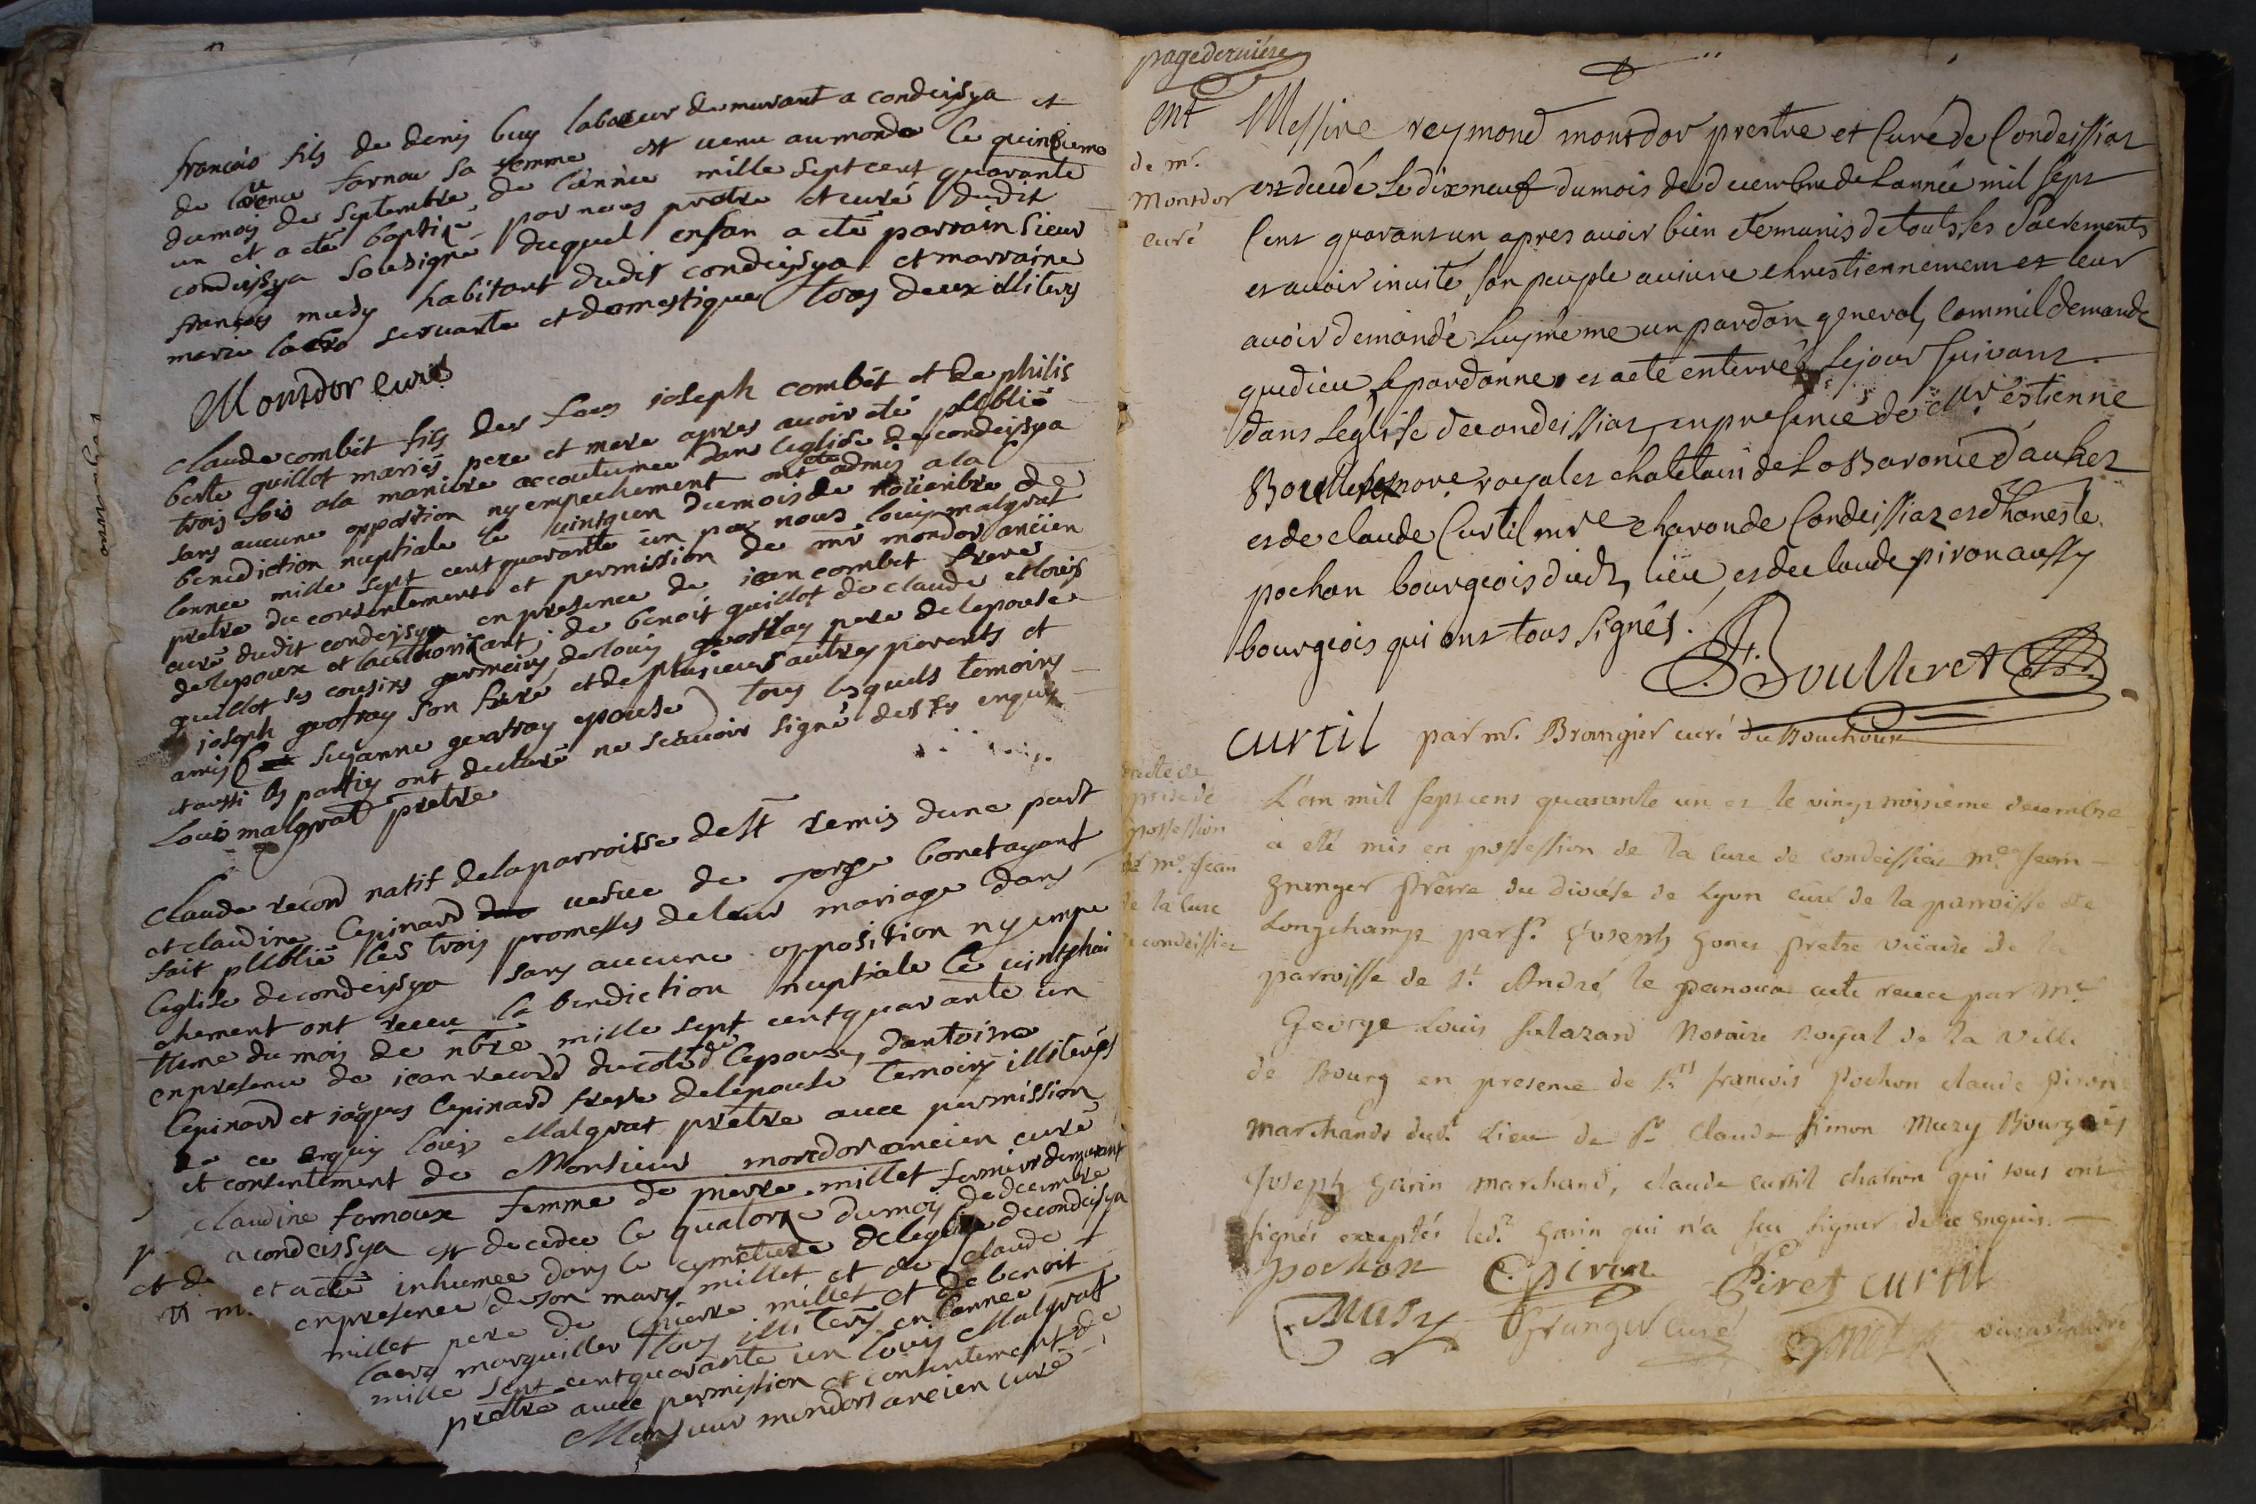 francois fils de denis buy laboureur demeurant a condeissya et
de lorence fornou sa femme est venu au monde le quinsieme
du mois de septembre de l'année mille sept cent quarante
un et a été baptisé par nous prêtre et curé dudit
condeissya soussigné duquel enfan a été parrain sieur
francois muesy habitant dudit condeissya et marraine
marie servante et domestique tous deux illiterés
Montdor curé
claude combét fils des feus joseph combét et de philis
berte guillot mariés pere et mere apres avoir été publié
trois fois a la maniere accoutumee dans l'eglise de condeissya
sans aucune opposition ny empechement ont été admis a la
benediction nuptiale le vintgun du mois de novembre de
lennee mille sept cent quarante un par nous louis malgrat
prétre du consentement et permission de mr mondor ancien
curé dudit condeissya en presence de jean combet frere
de lepoux et lauthorisant; de benoit guillot de claude et louis
guillot ses cousins germains de louis geofray pere de lepouse
joseph geofray son frere et de plusieurs autres parents et
amis susanne geofray epouse tous lesquels temoins
et aussi les parties ont declaré ne scavoir signé de ce enquis
Louis malgrat prétre
claude recond natif de la parroisse de st remis dune part
et claudine Cepinard vefve de george bonet ayant
fait publié les trois promesses de leur mariage dans
leglise de condeissya sans aucune opposition ny empe
chement ont receu la benediction nuptiale le vintghui
tieme du mois de nbre mille sept cent quarante un
en presence de jean recond du coté de lepoux, d'antoine
Cepinard et jaques Cepinard frere de lepouse temoins illiterés
de ce enquis louis Malgrat prétre avec permission
et consentement de Monsieur mondor ancien curé
claudine fornoux femme de pierre millet fermier demeurant
a condeissya est decedee le quatorze du mois de decembre
et a été inhumee dans le cymetiere de leglise de condeissya
en presence de son mary millet et de claude
millet pere de pierre millet et de benoit
laero marguillier tous illiterés en lannee
mille sept cent quarante un louis Malgrat
prétre avec permission et consentement de
Monsieur mondor ancien curé
page derniére
ent
de mr.
Montdor
curé
Messire reymond montdor prestre et Curé de Condeissiaz
est decedé Le dix neuf du mois de decembre de Lannée mil sept
Cent quarant un apres avoir bien eté munis de touts les Sacrements
et avoir invité son peuple a vivre chrestiennement et leur
avoir demandé Luy méme un pardon general, Comm il demande
que dieu Le pardonne, et a eté enterré Le jour suivant
dans L'église de condeissiaz, en presence de mr. estienne
Boulleret nore. royal et chatelain de La Baronie d
et de claude Curtil mre charon de Condeissiaz et d'honeste
pochon bourgeois dudt. lieu, et de claude piron aussy
bourgeois qui ont tous Signés.
Boulleret
curtil par mr. Brangier curé du Bouchoux
acte de
prise de
possession
de me. Jean
de la cure
de condeissiaz
L'an mil sept cens quarante un et le vingt troisième decembre
a eté mis en possession de la cure de condeissiaz me. Jean
Granger Prêtre du diocése de Lyon curé de la parroisse de
Longchamp par sr. Joseph Gonet Pretre vicaire de la
parroisse de St. André le panoux acte receu par Me
George Louis Salazard Notaire Royal de la ville
de Bourg en presence de Srs francois Pochon claude Piron
marchands dudt. Lieu de Sr. Claude Simon Muzy Bourgeois
Joseph Garin marchand, claude curtil charron qui tous ont
signés exceptés ledt. Garin qui n'a sceu signer de ce enquis.
pochon C. piron Piret curtil
Musy Granger curé Gonet